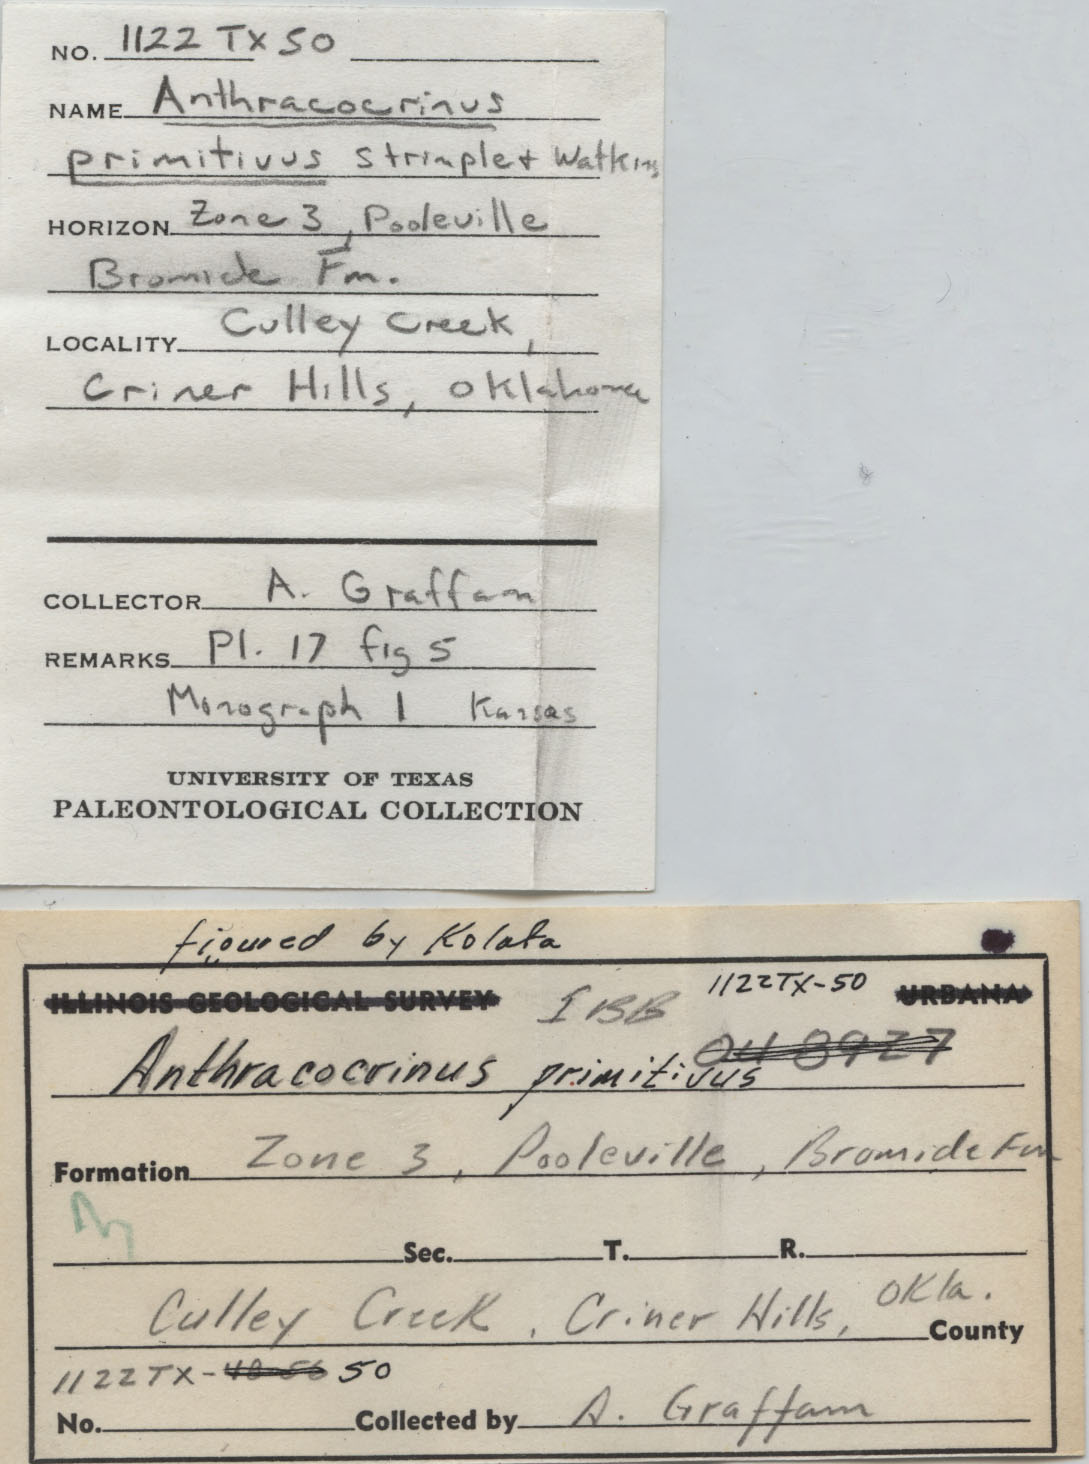 NO. 1122 TX 50
NAME Anthracocrinus
primitivus Strimple + Watkins
HORIZON Zone 3, Pooleville
Bromide Fm.
LOCALITY Culley Creek,
Criner Hills, Oklahoma
COLLECTOR A. Graffam
REMARKS Pl. 17 fig 5
Monograph 1 Kansas
UNIVERSITY OF TEXAS
PALEONTOLOGICAL COLLECTION
figured by Kolata
ILLINOIS GEOLOGICAL SURVEY IBB 1122TX-50 URBANA
Anthracocrinus primitivus
Formation Zone 3, Pooleville, Bromide Fm
Sec. T. R.
Culley Creek, Criner Hills, Okla. County
1122TX- 50
No. Collected by A. Graffam